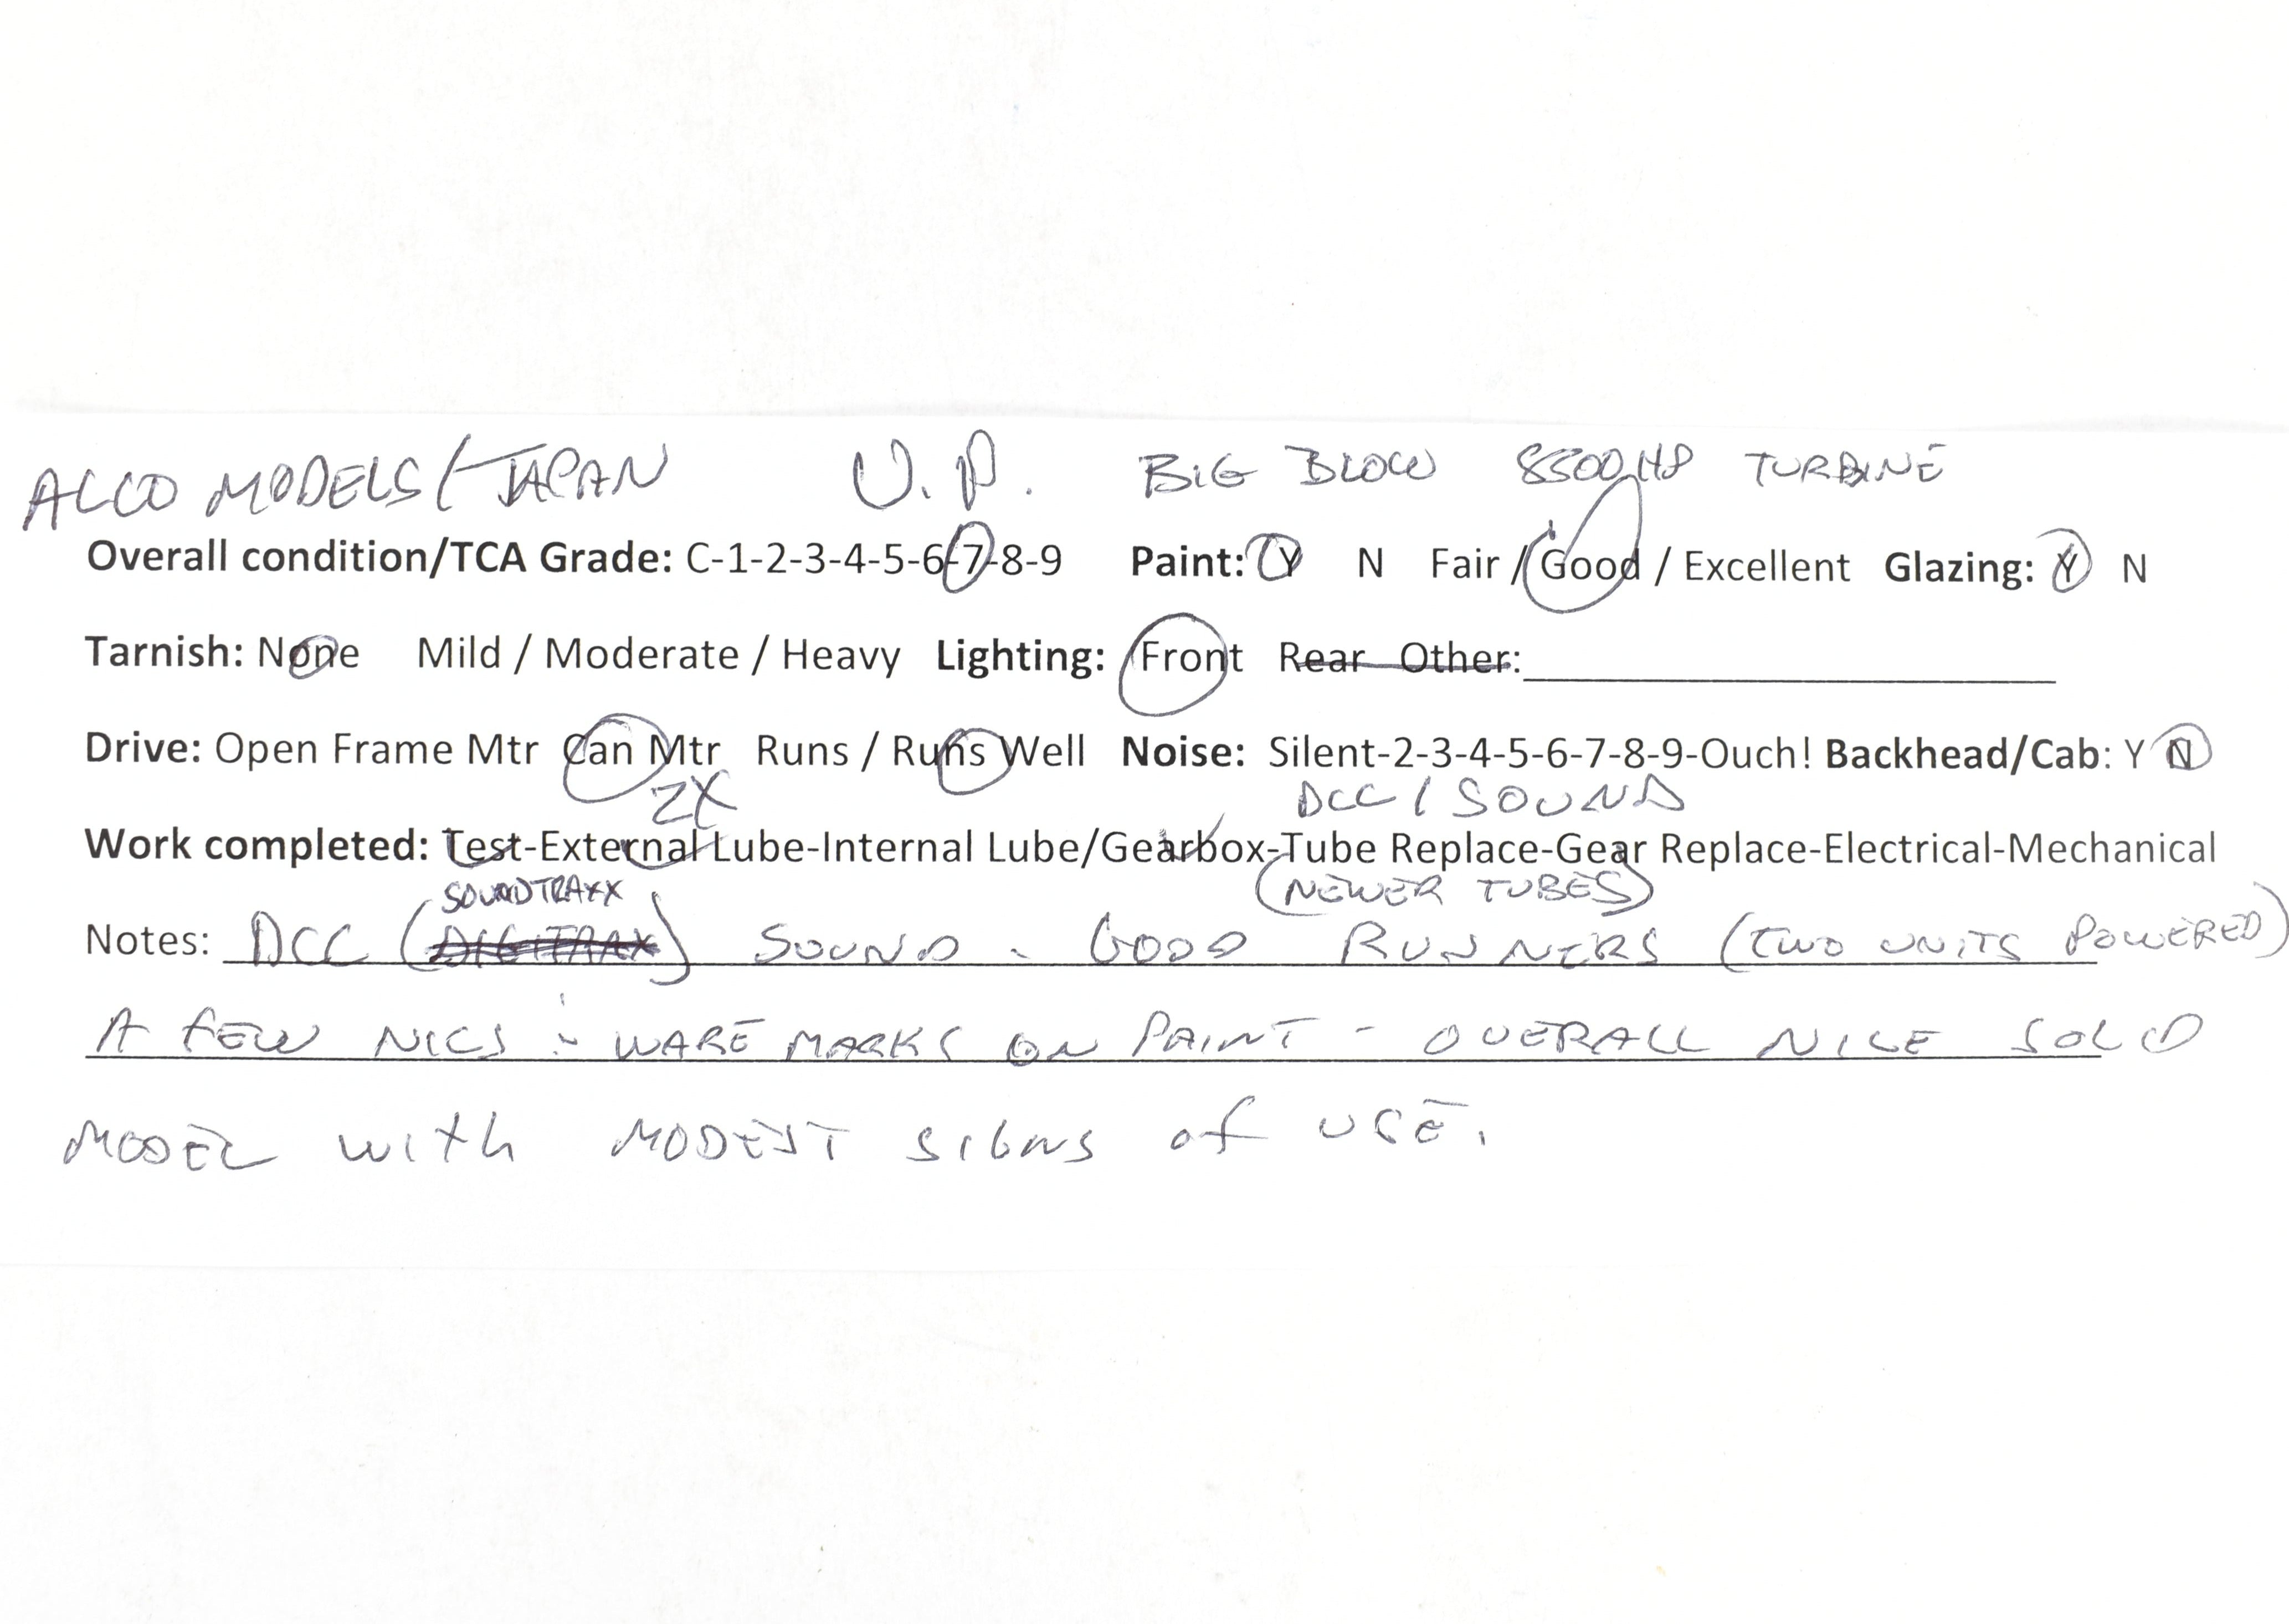 ALCO MODELS/JAPAN U.P. BIG BLOW 8500 HP TURBINE
Overall condition/TCA Grade: C-1-2-3-4-5-6-7-8-9 Paint: Y N Fair / Good / Excellent Glazing: Y N
Tarnish: None Mild / Moderate / Heavy Lighting: Front Rear Other:
Drive: Open Frame Mtr Can Mtr Runs / Runs Well Noise: Silent-2-3-4-5-6-7-8-9-Ouch! Backhead/Cab: Y N
2X DCC / SOUND
Work completed: Test-External Lube-Internal Lube/Gearbox-Tube Replace-Gear Replace-Electrical-Mechanical
SOUNDTRAXX (NEWER TUBES)
Notes: DCC (DIGITRAX) SOUND - GOOD RUNNERS (TWO UNITS POWERED)
A FEW NICS & WARE MARKS ON PAINT - OVERALL NICE SOLD
MODEL WITH MODEST SIGNS OF USE.